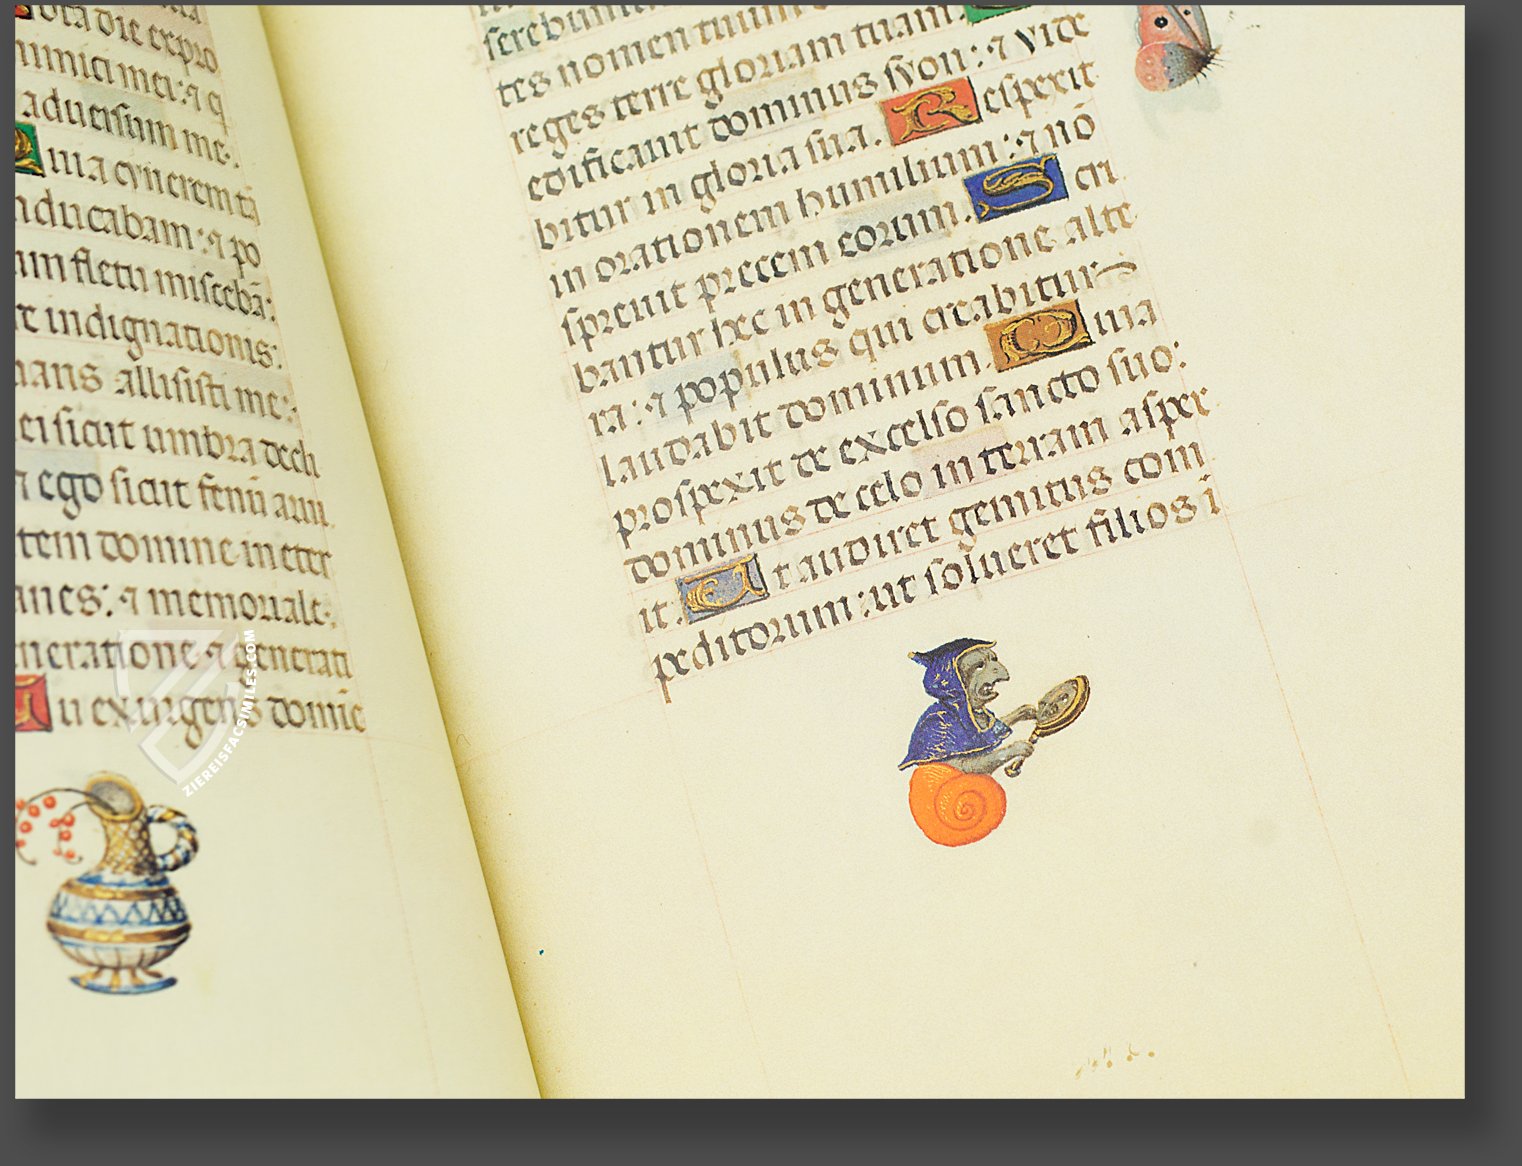 ota die expro
inimici mei: ⁊ q
aduersum me.
uia cyneremtā
nducabam: ⁊ po
um fletu miscebā:
indignationis:
uans allisisti me:
ei sicut umbra decli
⁊ ego sicut fenū arui.
tem domine in eter
anes: ⁊ memoriale.
neratione ⁊ generati
Tu exurgens domie
tes nomen tuum
reges terre gloriam tuam.
edificauit dominus syon: ⁊ vide
bitur in gloria sua. Respexit
in orationem humilium: ⁊ nō
spreuit precem eorum. Scri
bantur hec in generatione alte
ra: ⁊ populus qui creabitur
laudabit dominum. Quia
prospexit de excelso sancto suo:
dominus de celo in terram asper
it. Et audiret gemitus com
peditorum: ut solueret filios i
ZIEREISFACSIMILES.COM